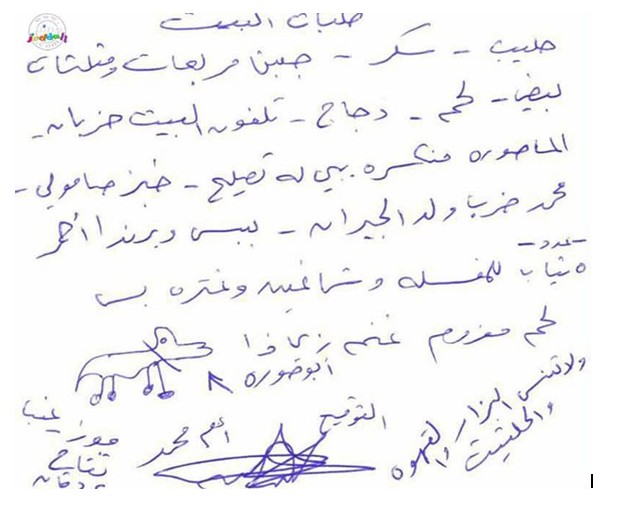 طلبات البيت
حليب - سكر - جبن مربعات ومثلثات
لبيض - لحم - دجاج - تلفون البيت خربان -
الماصوره منكسره يبي له تصليح - خبز صامولي -
محمد ضرب ولد الجيران - ببسي وبرندا أحمر
- عدد -
٥ ثياب للمغسله وشماغين وغتره بس
لحم مفروم غنم زي ذا
أبو صوره
ولا تنسى البزار والقهوه
والحلتيت
التوقيع
أم محمد
عنب
موز
تفاح